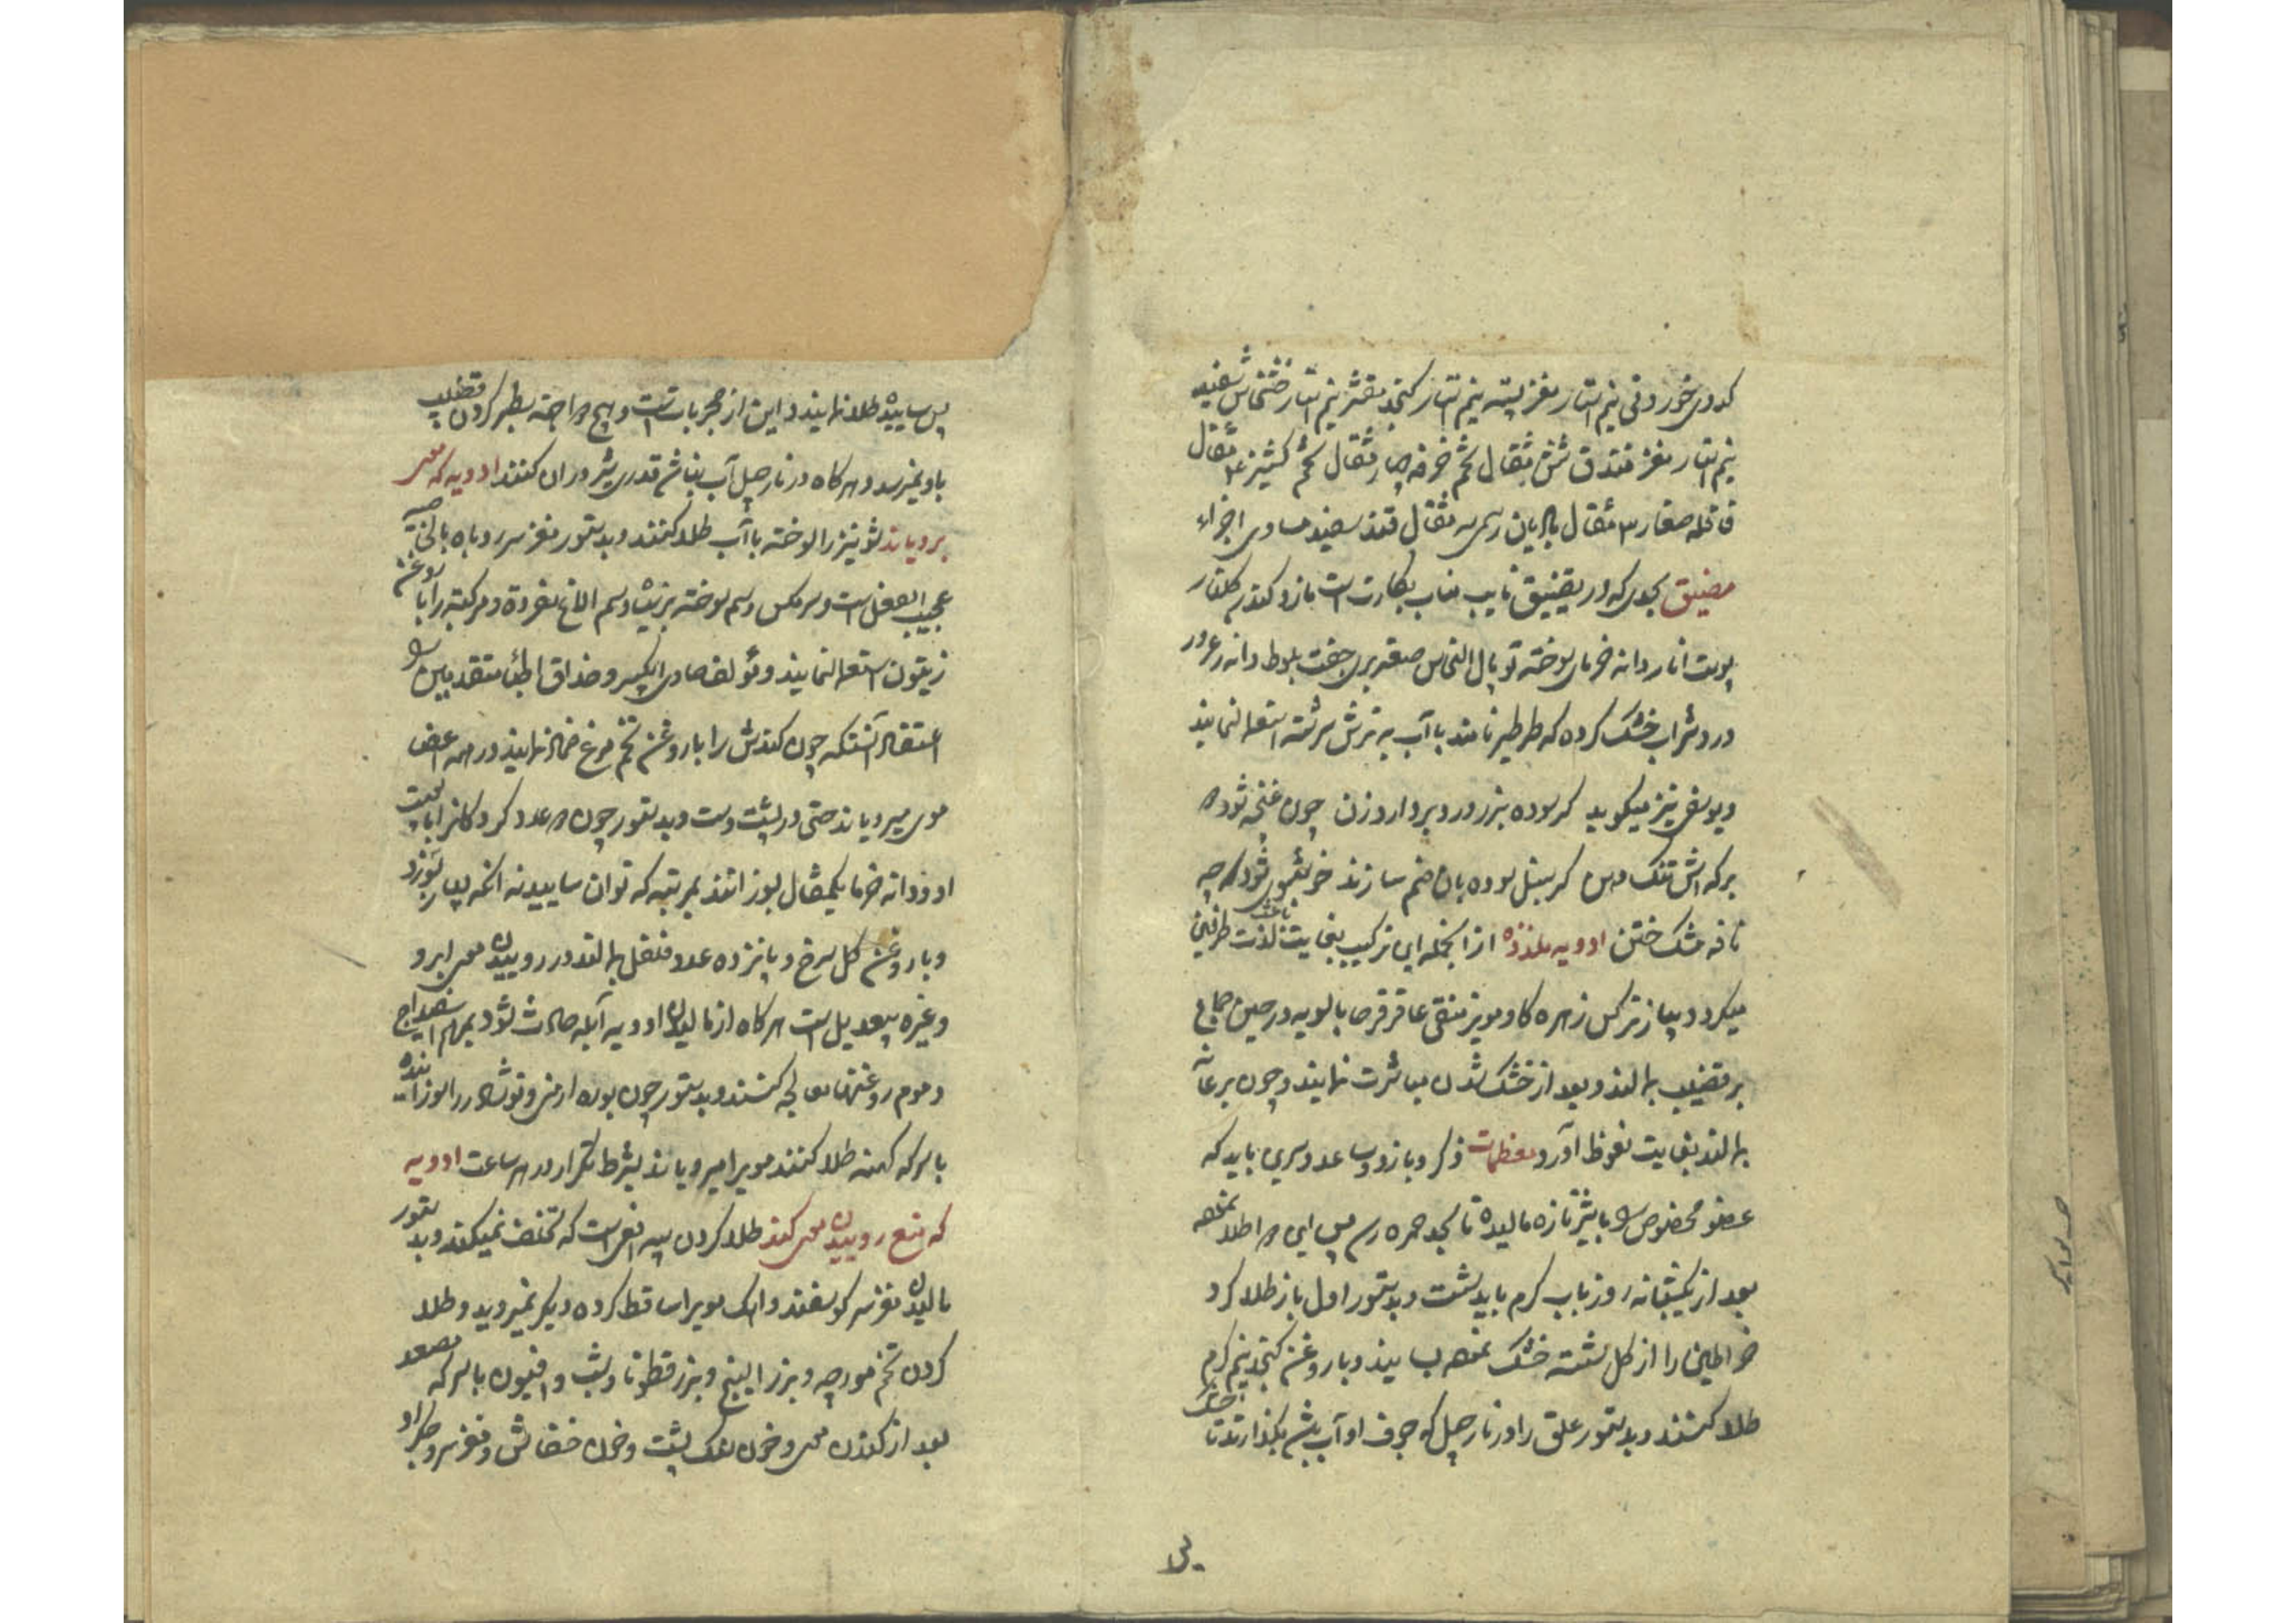 کدوی خوردنی نیم استار مغز پسته نیم استار کنجد مقشر نیم استار خشخاش سفید
نیم استار مغز فندق شش مثقال تخم خرفه چهار مثقال تخم کشنیز مثقال
قاقله صغار ۳ مثقال بادیان رسمی سه مثقال قند سفید مساوی اجزاء
مضیق بحدی که در تضییق نایب مناب بکارت است مازو کندر گلنار
پوست انار دانه خرمای سوخته توبال النحاس صعتر بری جفت بلوط دانه زعرور
درد شراب خشک کرده که طرطیر نامند با آب به ترش سرشته استعمال نمایند
و یوسفی نیز میگوید گر سوده بزر ورد بردارد زن چون غنچه شود
برکه اش تنک دهن گر سنبل سوده بان ضم سازند خوشبوی شود چه
نافه مشک ختن ادویه ملذذه از انجمله این ترکیب بغایت باعث لذت طرفین
میکردد پیاز نرکس زهره کاو مویز منقی عاقرقرحا بالسویه در حین جماع
بر قضیب بمالند و بعد از خشک شدن مباشرت نمایند و چون بر عانه
بمالند بغایت نعوظ آورد معظمات ذکر و بازو و ساعد و سرین باید که
عضو مخصوص را بشیر تازه مالیده تا بحد حمره رسد پس این را طلا نموده
بعد از یکشبانه روز باب کرم باید شست و بدستور اول باز طلا کرد
خراطین را از کل شسته خشک نموده بسایند و با روغن کنجد نیم کرم
طلا کنند و بدستور علق را در نارجیل که جوف او آب باشد بکذارند تا خشک
پس ساییده طلا نمایند و این از مجربات است و هیچ دوا جهة سطبر کردن قضیب
باو نمیرسد و هرکاه در نارجیل آب نباشد قدری شیر در ان کنند ادویه که موی
برویاند شونیز را سوخته با آب طلا کنند و بدستور مغز سر روباه بالخاصیه
عجیب الفعل است و سر مکس و سم سوخته بز و سم الاغ مفرده و مرکبه را با روغن
زیتون استعمال نمایند و مؤلف حاوی الکبیر و حذاق اطبا متقدمین را
اعتقاد آنستکه چون کندش را با روغن تخم مرغ ضماد نمایند در همه اعضا
موی میرویاند حتی در پشت دست و بدستور چون ده عدد کردکان را با پوست
او و دانه خرما یکمثقال بسوزانند بمرتبه که توان سایید نه انکه بسیار بسوزد
و با روغن کل سرخ و پانزده عدد فلفل بمالند در روییدن موی ابرو
و غیره بیعدیل است هرکاه از مالیدن ادویه آبله حادث شود بمرهم اسفیداج
و موم روغنها معالجه کنند و بدستور چون بوره ارمنی و نوشادر را سوزانیده
با سرکه کهنه طلا کنند مویرا میرویاند بشرط تکرار در هر ساعت ادویه
که منع روییدن موی کند طلا کردن پیه افعی است که تخلف نمیکند و بدستور
مالیدن مغز سر کوسفند و اهک مویرا ساقط کرده دیکر نمیروید و طلا
کردن تخم مورچه و بزر البنج و بزر قطونا و شب و افیون با سرکه مصعد
بعد از کندن موی و خون سنک پشت و خون خفاش و مغز سر و جکر او